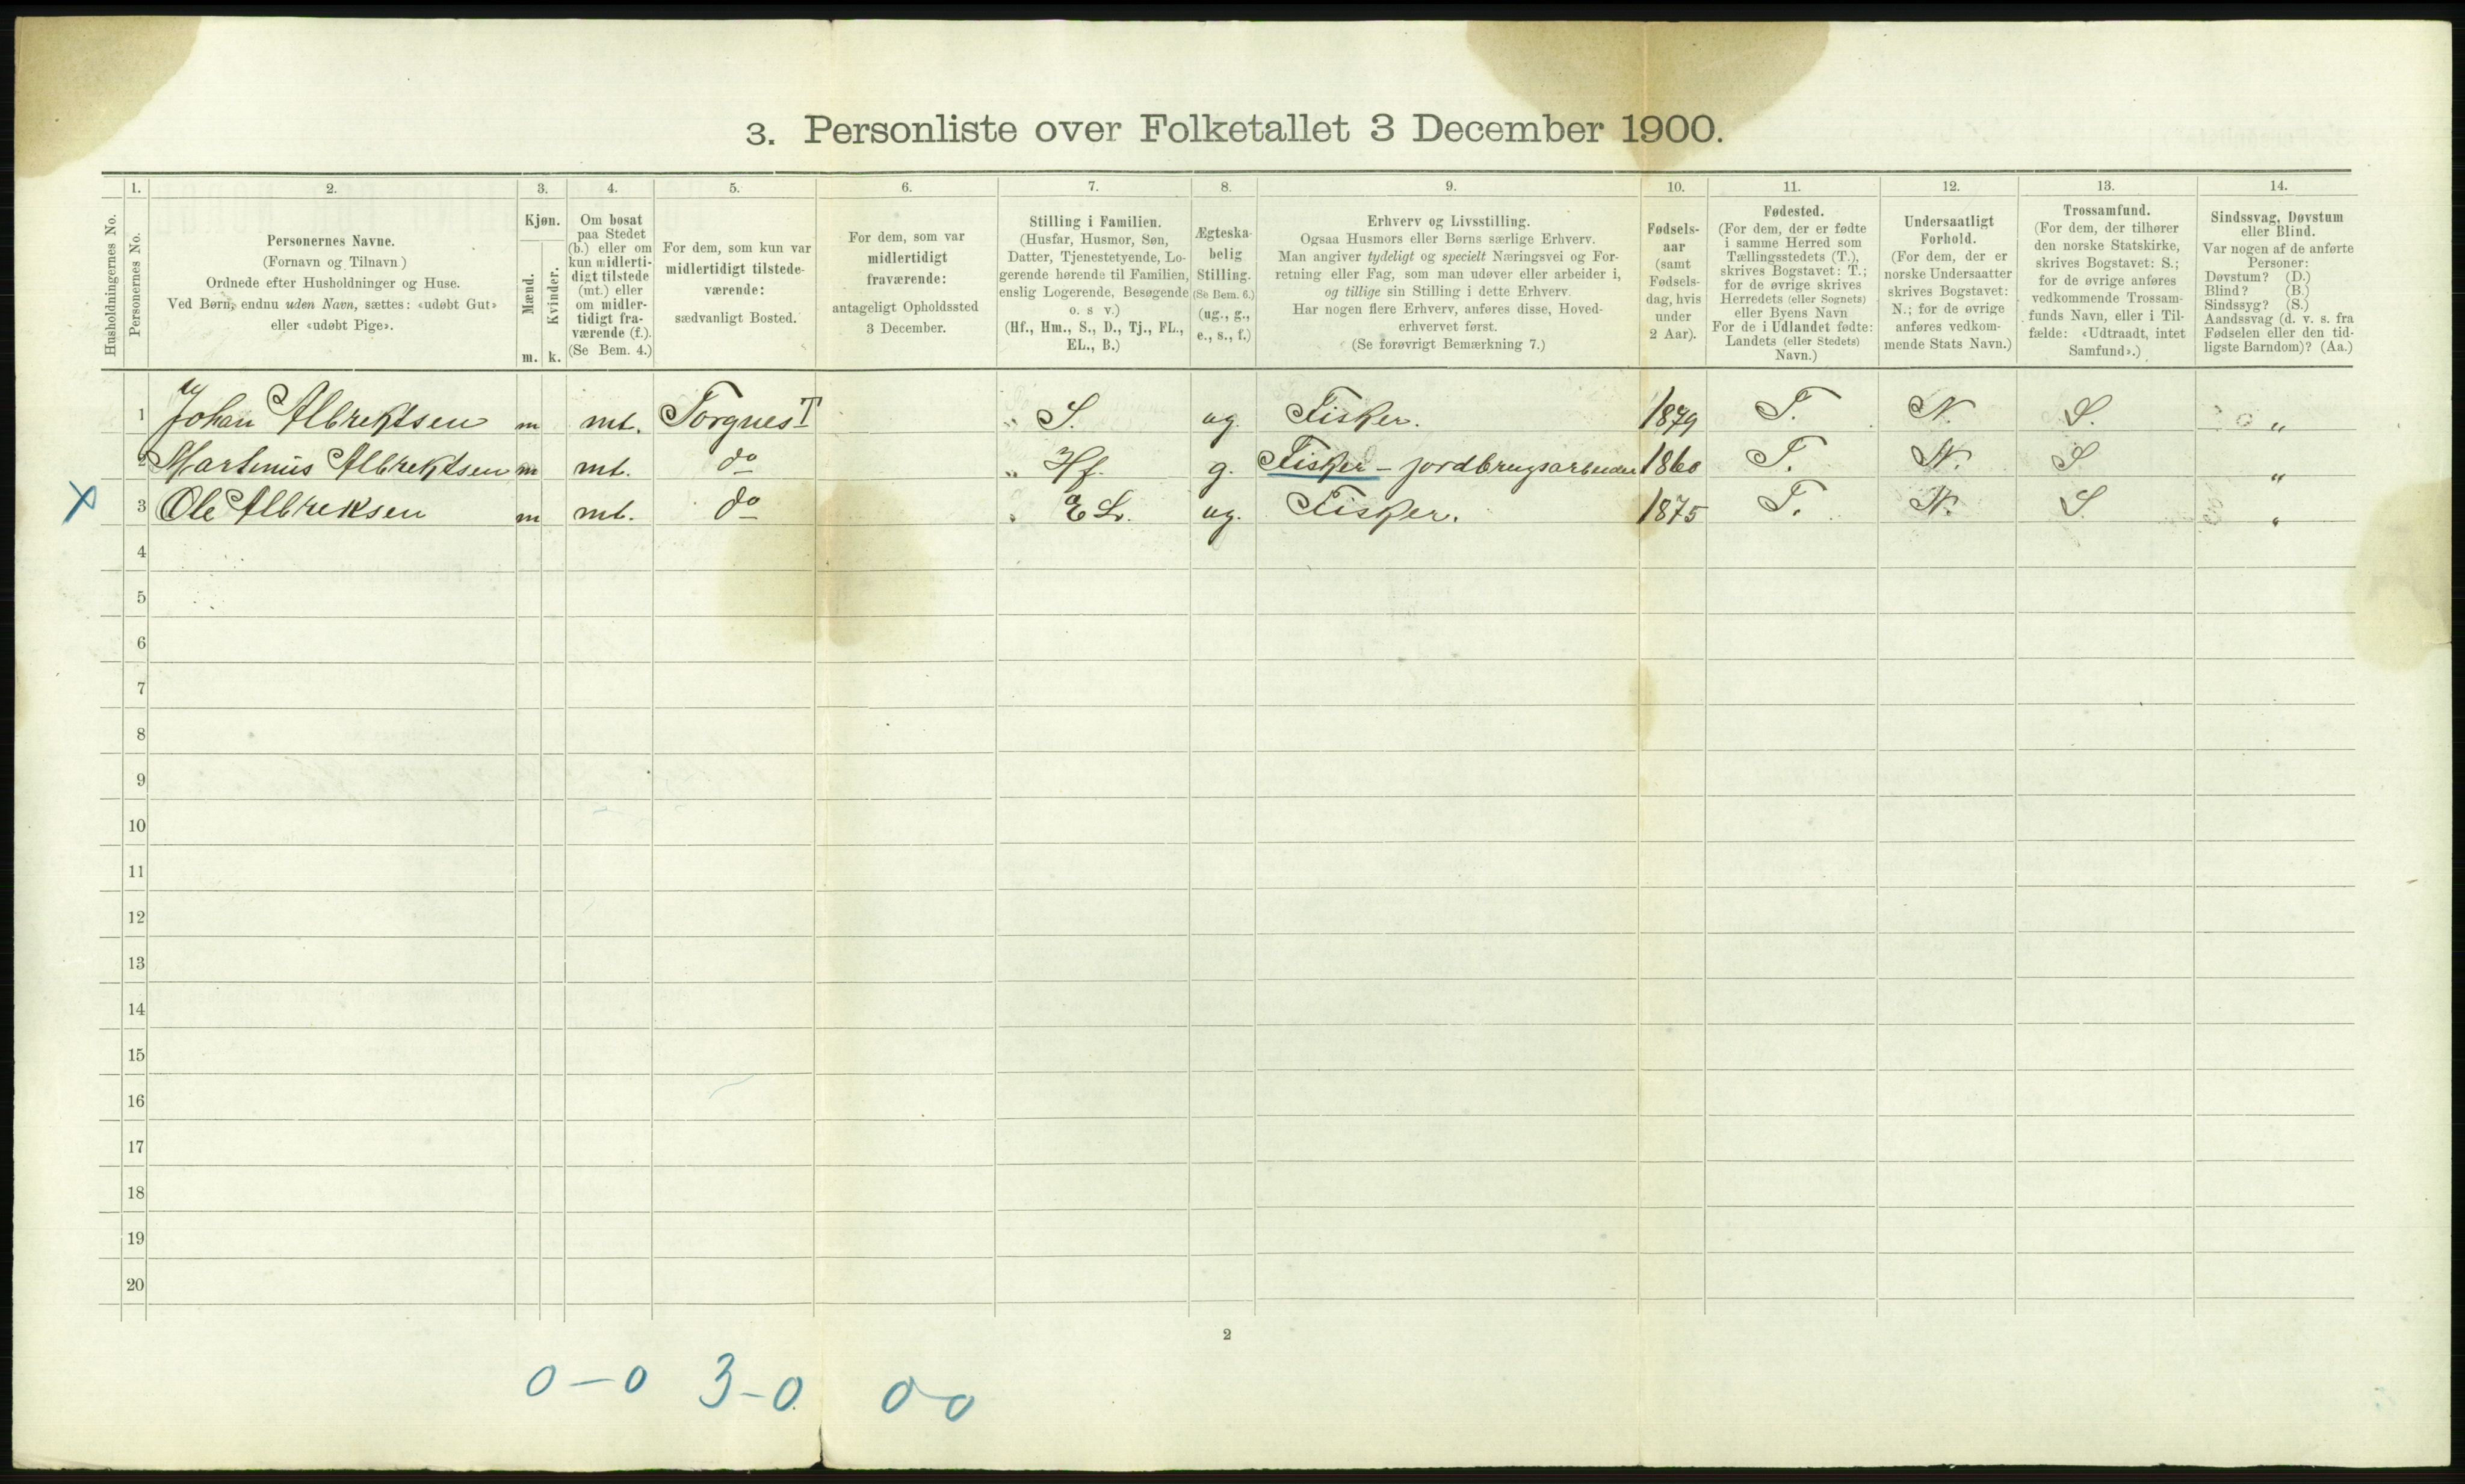 3. Personliste over Folketallet 3 December 1900.
Husholdningernes No.
1.
Personernes No.
2.
Personernes Navne.
(Fornavn og Tilnavn.)
Ordnede efter Husholdninger og Huse.
Ved Børn, endnu uden Navn, sættes: «udøbt Gut»
eller «udøbt Pige».
3.
Kjøn.
Mænd.
Kvinder.
m. k.
4.
Om bosat
paa Stedet
(b.) eller om
kun midlerti-
digt tilstede
(mt.) eller
om midler-
tidigt fra-
værende (f.).
(Se Bem. 4.)
5.
For dem, som kun var
midlertidigt tilstede-
værende:
sædvanligt Bosted.
6.
For dem, som var
midlertidigt
fraværende:
antageligt Opholdssted
3 December.
7.
Stilling i Familien.
(Husfar, Husmor, Søn,
Datter, Tjenestetyende, Lo-
gerende hørende til Familien,
enslig Logerende, Besøgende
o. s v.)
(Hf., Hm., S., D., Tj., FL.,
EL., B.)
8.
Ægteska-
belig
Stilling.
(Se Bem. 6.)
(ug., g.,
e., s., f.)
9.
Erhverv og Livsstilling.
Ogsaa Husmors eller Børns særlige Erhverv.
Man angiver tydeligt og specielt Næringsvei og For-
retning eller Fag, som man udøver eller arbeider i,
og tillige sin Stilling i dette Erhverv.
Har nogen flere Erhverv, anføres disse, Hoved-
erhvervet først.
(Se forøvrigt Bemærkning 7.)
10.
Fødsels-
aar
(samt
Fødsels-
dag, hvis
under
2 Aar).
11.
Fødested.
(For dem, der er fødte
i samme Herred som
Tællingsstedets (T.),
skrives Bogstavet: T.;
for de øvrige skrives
Herredets (eller Sognets)
eller Byens Navn
For de i Udlandet fødte:
Landets (eller Stedets)
Navn.)
12.
Undersaatligt
Forhold.
(For dem, der er
norske Undersaatter
skrives Bogstavet:
N.; for de øvrige
anføres vedkom-
mende Stats Navn.)
13.
Trossamfund.
(For dem, der tilhører
den norske Statskirke,
skrives Bogstavet: S.;
for de øvrige anføres
vedkommende Trossam-
funds Navn, eller i Til-
fælde: «Udtraadt, intet
Samfund».)
14.
Sindssvag, Døvstum
eller Blind.
Var nogen af de anførte
Personer:
Døvstum? (D.)
Blind? (B.)
Sindssyg? (S.)
Aandssvag (d. v. s. fra
Fødselen eller den tid-
ligste Barndom)? (Aa.)
1 Johan Albrektsen m mt. Torgnes T " S. ug. Fisker. 1879 T. N. S. "
2 Martinius Albrektsen m mt. do " Hf. g. Fisker - jordbrugsarbeider 1860 T. N. S "
X 3 Ole Albreksen m mt. do " EL. ug. Fisker. 1875 T. N. S "
4
5
6
7
8
9
10
11
12
13
14
15
16
17
18
19
20
2
0-0 3-0 0-0